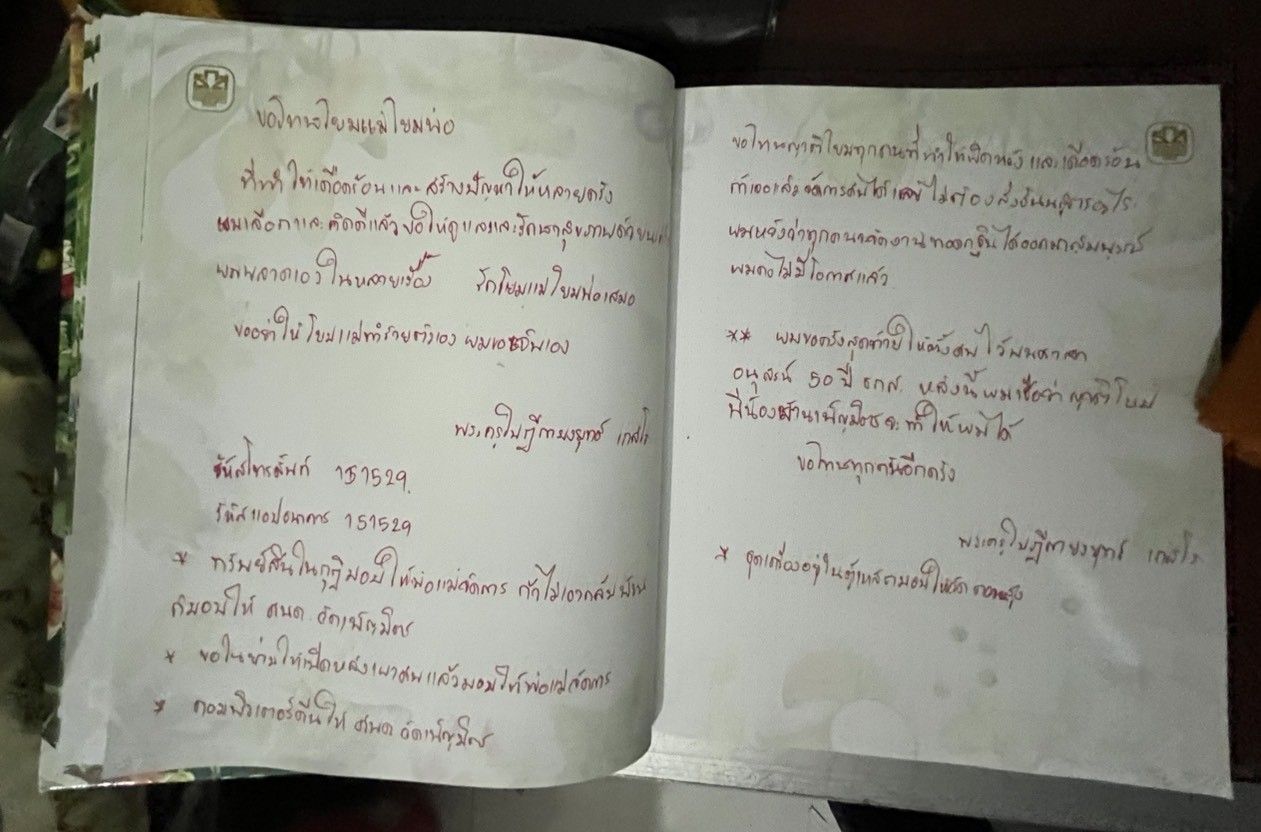 ขอโทษโยมแม่โยมพ่อ
ที่ทำให้เดือดร้อนและสร้างปัญหาให้หลายครั้ง
ผมเลือกและคิดดีแล้ว ขอให้ดูแลและรักษาสุขภาพด้วยนะ
ผมพลาดเองในหลายเรื่อง รักโยมแม่โยมพ่อเสมอ
ขออย่าให้โยมแม่ทำร้ายตัวเอง ผมขอ
พระครูใบฎีกายงยุทธ์ เกสโร
รหัสโทรศัพท์ 151529
รหัสแอปธนาคาร 151529
* ทรัพย์สินในกุฏิมอบให้พ่อแม่จัดการ ถ้าไม่เอากลับบ้าน
ก็มอบให้ ศพด วัดเพ็ญมิตร
* ขอในย่ามให้เปิดหลังเผาศพแล้วมอบให้พ่อแม่จัดการ
* คอมพิวเตอร์คืนให้ ศพด วัดเพ็ญมิตร
ขอโทษญาติโยมทุกคนที่ทำให้ผิดหวังและเดือดร้อน
ถ้าเจอแล้วจัดการศพได้เลย ไม่ต้องส่งชันสูตรอะไร
ผมหวังว่าทุกคนจัดงานทอดกฐินได้ออกมาสมบูรณ์
ผมคงไม่มีโอกาสแล้ว
** ผมขอครั้งสุดท้ายให้ตั้งศพไว้บนศาลา
อนุสรณ์ 50 ปี ธกส. หลังนี้ผมเชื่อว่า ญาติโยม
พี่น้องบ้านเพ็ญมิตรจะทำให้ผมได้
ขอโทษทุกคนอีกครั้ง
พระครูใบฎีกายงยุทธ์ เกสโร
* ชุดเครื่องอยู่ในตู้เหล็กมอบให้วัด